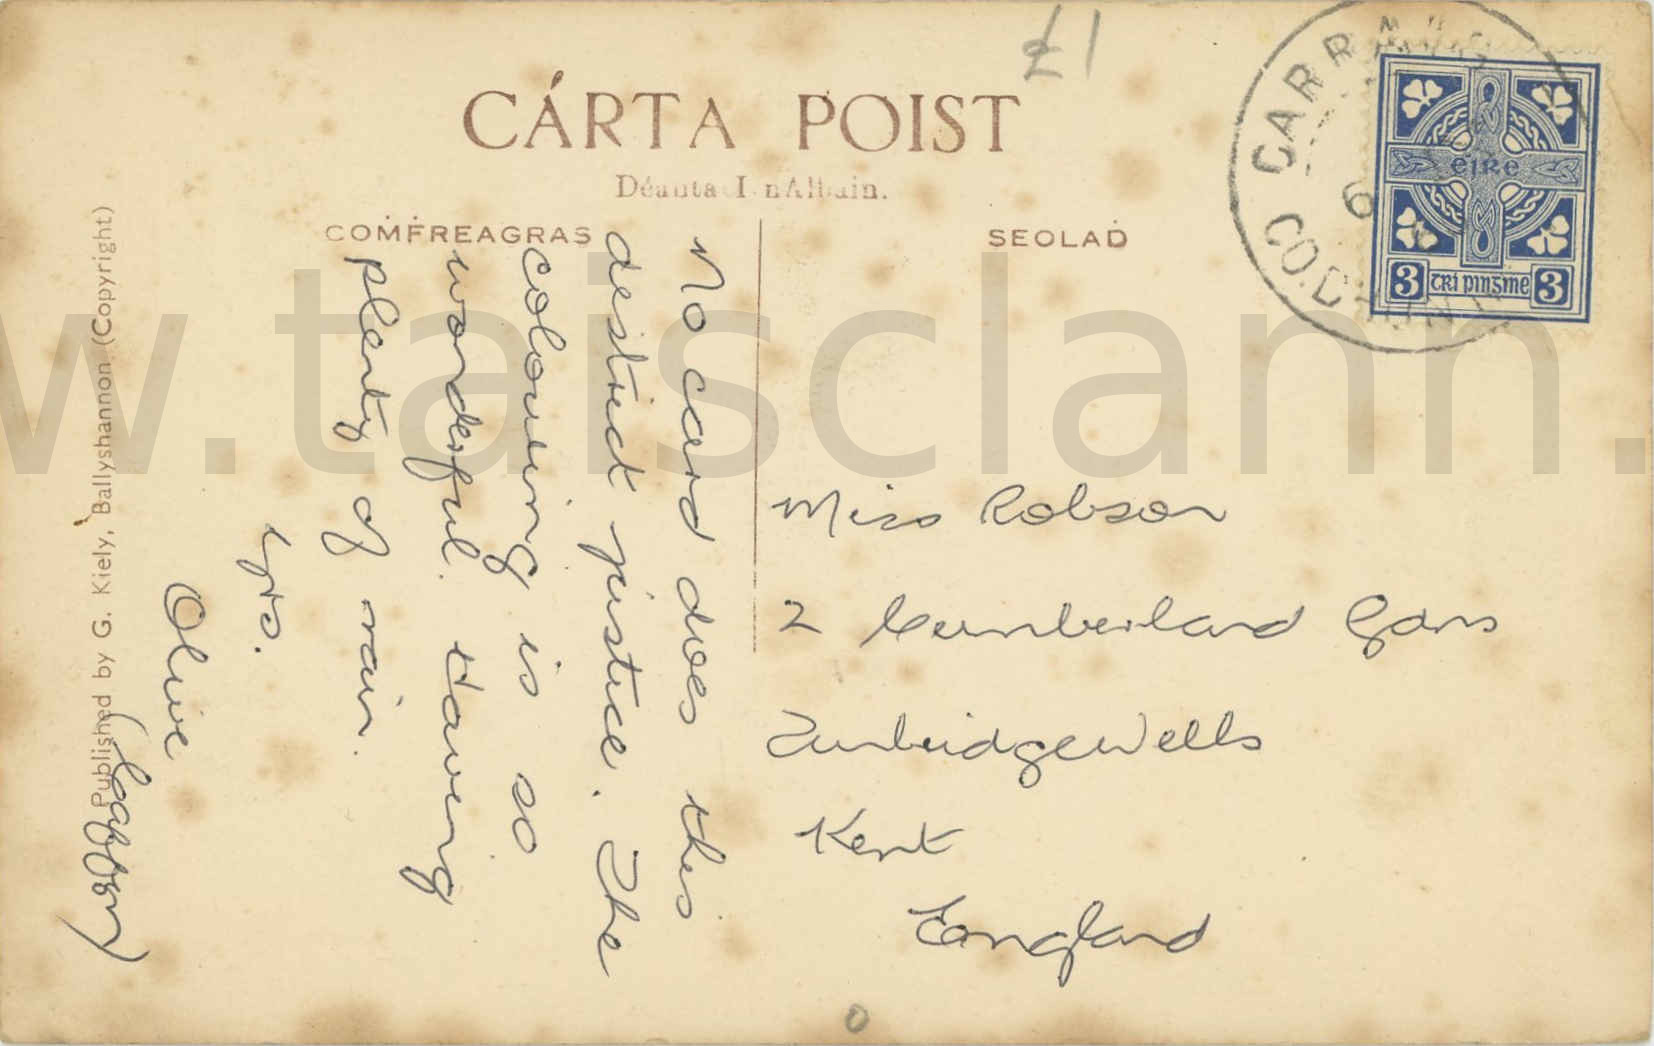 £1
CÁRTA POIST
Déanta I nAlbain.
COṀḞREAGRAS
SEOLAḊ
CARRAIG
CO.DUN
6
éIRe
3 TRí pINSINe 3
No card does this
district justice. The
colouring is so
wonderful. Having
plenty of rain.
Yrs.
Olive
Miss Robson
2 Cumberland Gdns
Tunbridge Wells
Kent
England
Published by G. Kiely, Ballyshannon (Copyright)
w.taisclann.
0